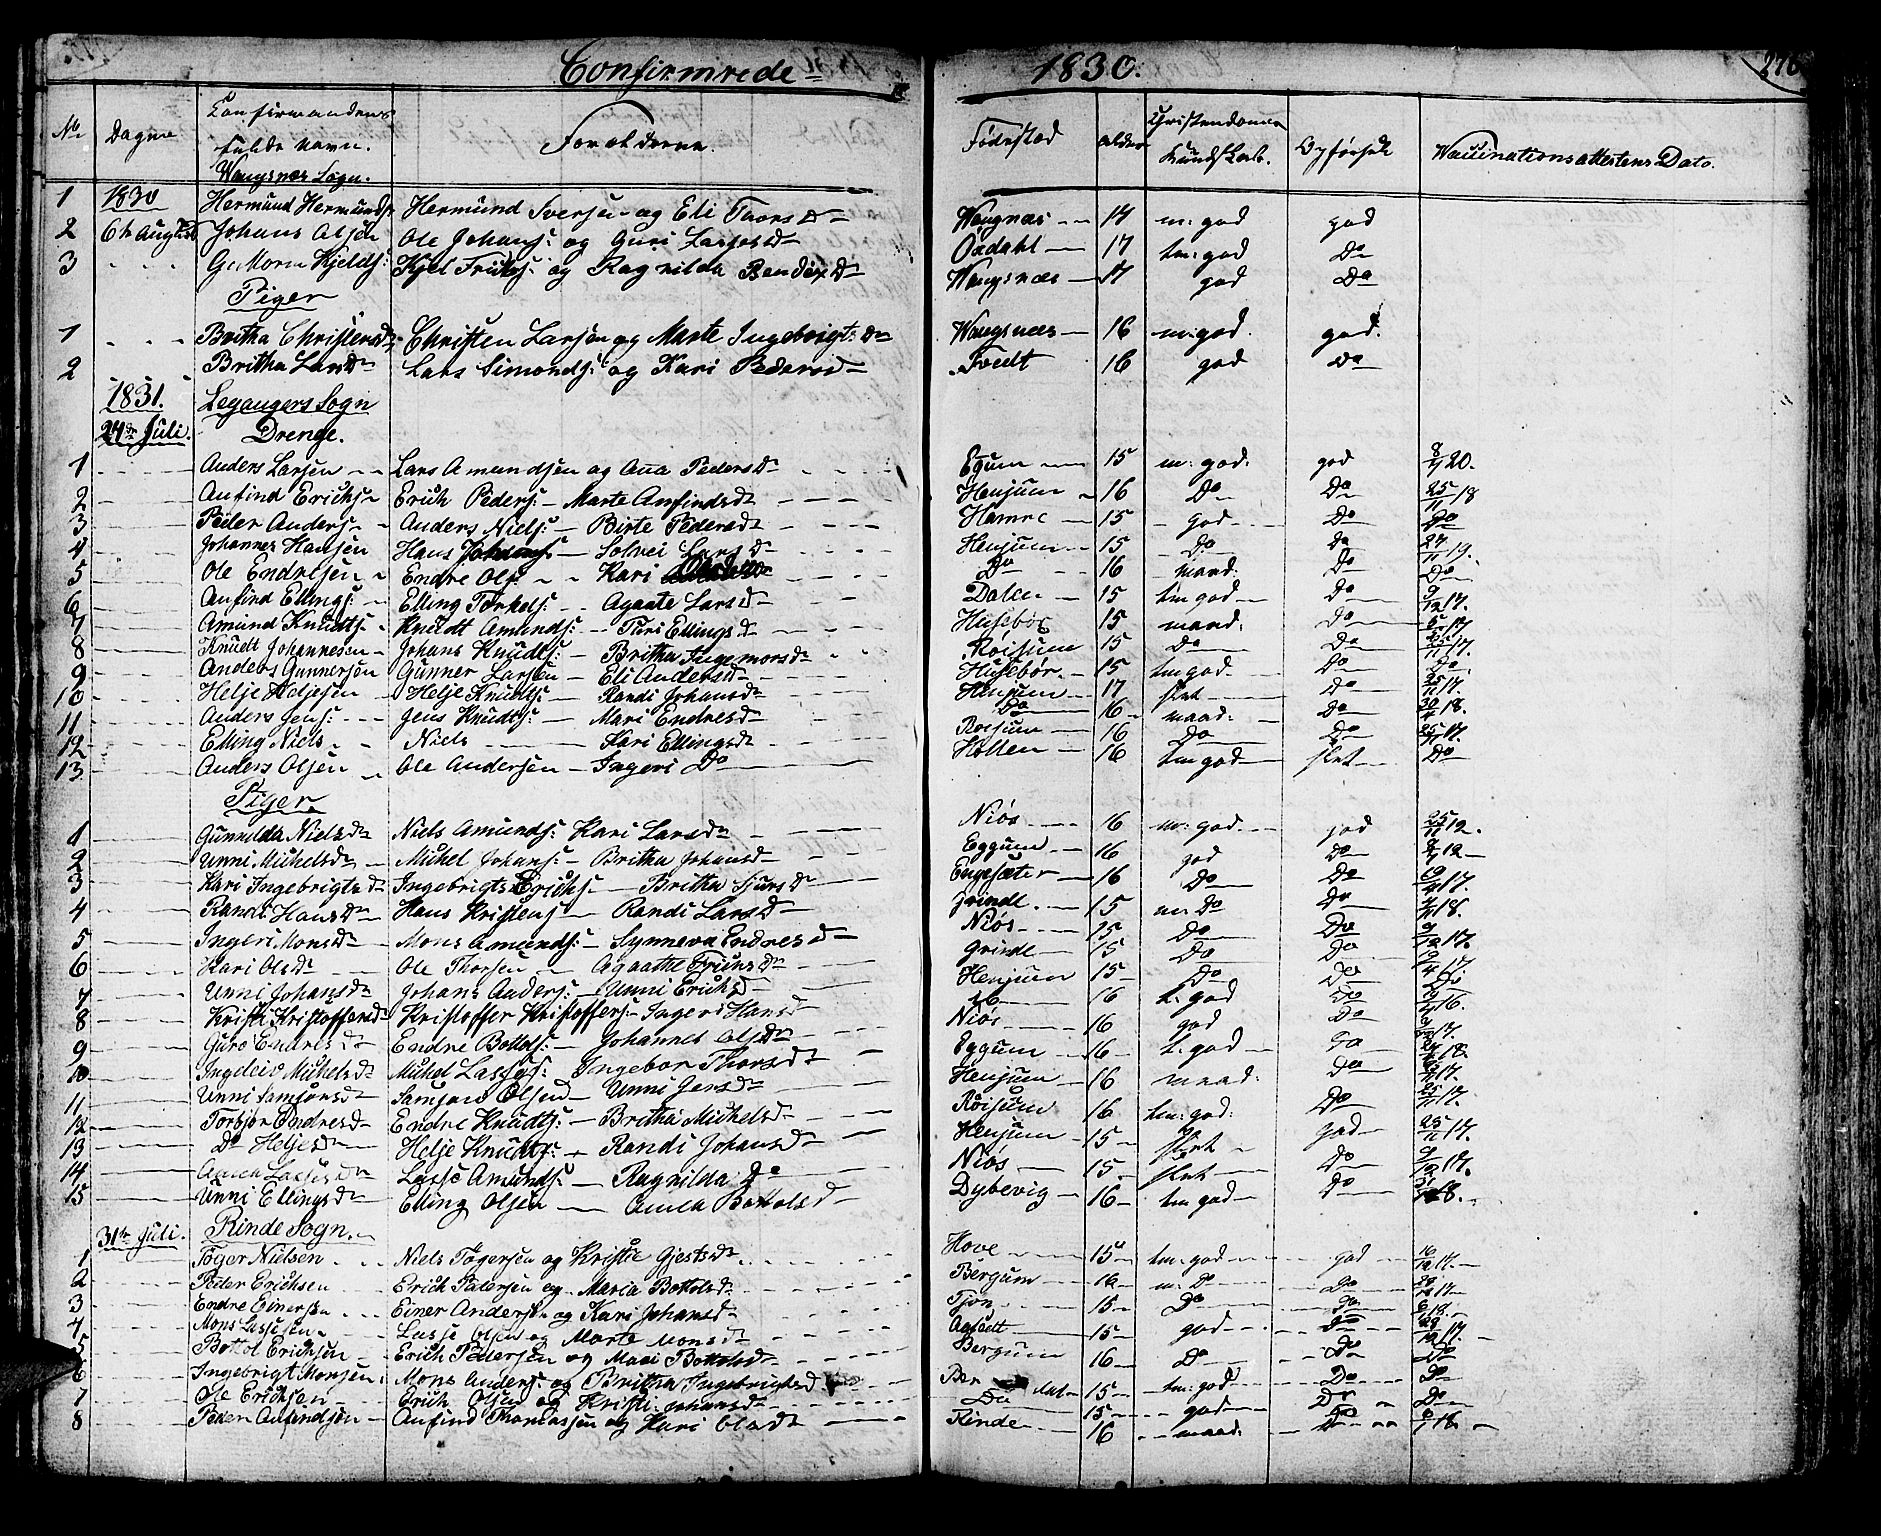 Confirmrede 1830. 276
No Dagene Confirmandens fulde Navn. Forældrene. Fødested alder Christendoms Kundskab. Opførsel Vaccinations attestens Dato.
Wangsnæs Sogn.
1 1830 Hermund Hermunds: Hermund Iversen og Eli Thorsdr Wangnæs 14 m: god god
2 6te August Johans Olsen Ole Johans: og Guri Lassesdr 17 tm: god Do
3 Kjelds: Kjel og Ragnilda Bendixdr Wangsnæs 17 god Do
Piger
1 Bertha Christensdr Christen Larsen og Marte Ingebrigtsdr Wangsnæs 16 m: god. god.
2 Britha Larsdr Lars Simonds: og Kari Pedersdr Tvedt 16 god Do
1831. Leganger Sogn
24de Juli. Drenge.
1 Anders Larsen Lars Amundsen og Ana Pedersdr Eggum 15 m: god. god 8/7 20.
2 Anfind Erichsen Erich Peders: Marte Anfindsdr Henjum 16 Do Do 25/11 18
3 Peder Anders: Anders Niels: Birte Pedersdr Hamre 15 god Do Do
4 Johannes Hansen Hans Solvei Larsdr Henjum 15 Do Do 24/11 19.
5 Ole Endresen Endre Ols: Kari Do 16 maad: Do Do
6 Anfind Ellings: Elling Torkels: Agaate Larsdr Dalen 15 tm god Do 9/12 17.
7 Amund Knudts: Knudt Amunds: Turi Ellingsdr Husebøe 15 maad: Do 17
8 Knudt Johannesen Johans Knudts: Britha Ingemorsdr Røisum 15 Do Do 17.
9 Anders Gunnersen Gunner Larsen Eli Andersdr Husebør 15 tm god Do Do
10 Helje Heljesen Helje Knudts: Randi Johansdr Henjum 17 slet Do 25/11 17.
11 Anders Jens: Jens Knudts: Mari Endresdr Do 16 maad: Do 18.
12 Elling Niels Niels Kari Ellingsdr Røisum 16 Do Do 25/11 17.
13 Anders Olsen Ole Andersen Ingeri Do Holten 16 tm god slet Do
Piger
1 Gunnilda Nielsdr Niels Amunds: Kari Larsdr Niøs 16 m: god god 25/11 12.
2 Unni Michelsdr Michel Johans: Britha Johansdr Eggum 16 god Do 12
3 Kari Ingebrigtsdr Ingebrigts Erichs: Britha Sjursdr Engesæter 16 Do Do 17.
4 Randi Hansdr Hans Kristens: Randi Larsdr Grindl 15 m Do Do 18.
5 Ingeri Monsdr Mons Amunds: Synneva Endresdr Niøs 15 Do Do 9/12 17.
6 Kari Olsdr Ole Thorsen Agaathe Grindl 15 Do Do 17.
7 Unni Johansdr Johans Anders: Unni Erichsdr Henjum 15 Do Do Do
8 Kristi Kristoffersdr Kristoffer Kristoffers: Ingeri Hansdr Do 16 t: god Do 16.
9 Guro Endresdr Endre Bottols: Johanne Olsdr Niøs 16 god Do 17.
10 Ingeleiv Michelsdr Michel Lasses: Ingebor Thorsdr Eggum 16 t: god Do 18.
11 Unni Samsonsdr Samson Olsen Unni Jensdr Henjum 16 maad: Do 17.
12 Torbjør Endresdr Endre Knudts: Britha Michelsdr Røisum 16 tm: god: Do 25/11 17.
13 Do Heljesdr Helje Knudts: Randi Johansdr Henjum 15 slet god 25/11 17.
14 Lassesdr Lasse Amunds: Ragnilda Do Niøs 15 slet Do 9/12 17.
15 Unni Ellingsdr Elling Olsen Anna Bottolsdr Dybevig 16 tm god Do 18.
31te Juli. Rinde Sogn.
1 Tøger Nielsen Niels Tøgersen og Kristie Gjestsdr Hove 15 tm: god god 16/12 17.
2 Peder Erichsen Erich Pedersen og Maria Bottolsdr Bergum 16 m: Do Do 17
3 Endre Einersen Einer Anders: og Kari Johansdr Tjøn 15 Do Do 18.
4 Mons Lassesen Lasse Olsen og Marte Monsdr 15 god Do 17.
5 Bottol Erichsen Erich Pedersen og Mari Bottolsdr Bergum 16 Do Do Do
6 Ingebrigt Monsen Mons Anders: og Britha Ingebrigtsdr 15 tm: god Do Do
7 Ole Erichsen Erich Olsen og Kristi Johansdr Do 15 god Do Do
8 Peder Anfindsen Anfind Thomassen og Kari Olsdr Rinde 16 maad: Do 18.